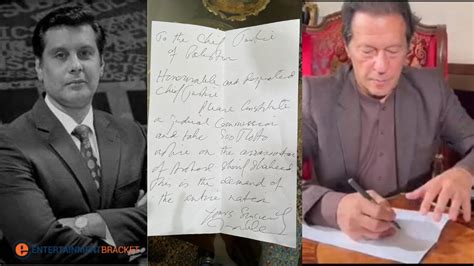 To the Chief Justice
of Pakistan
Honourable and Respected
Chief Justice
Please Constitute
a judicial Commission
and take Suo Motto
notice on the assassination
of Arshad Sharif Shaheed
This is the demand of
the entire nation
Yours Sincerely
ENTERTAINMENTBRACKET